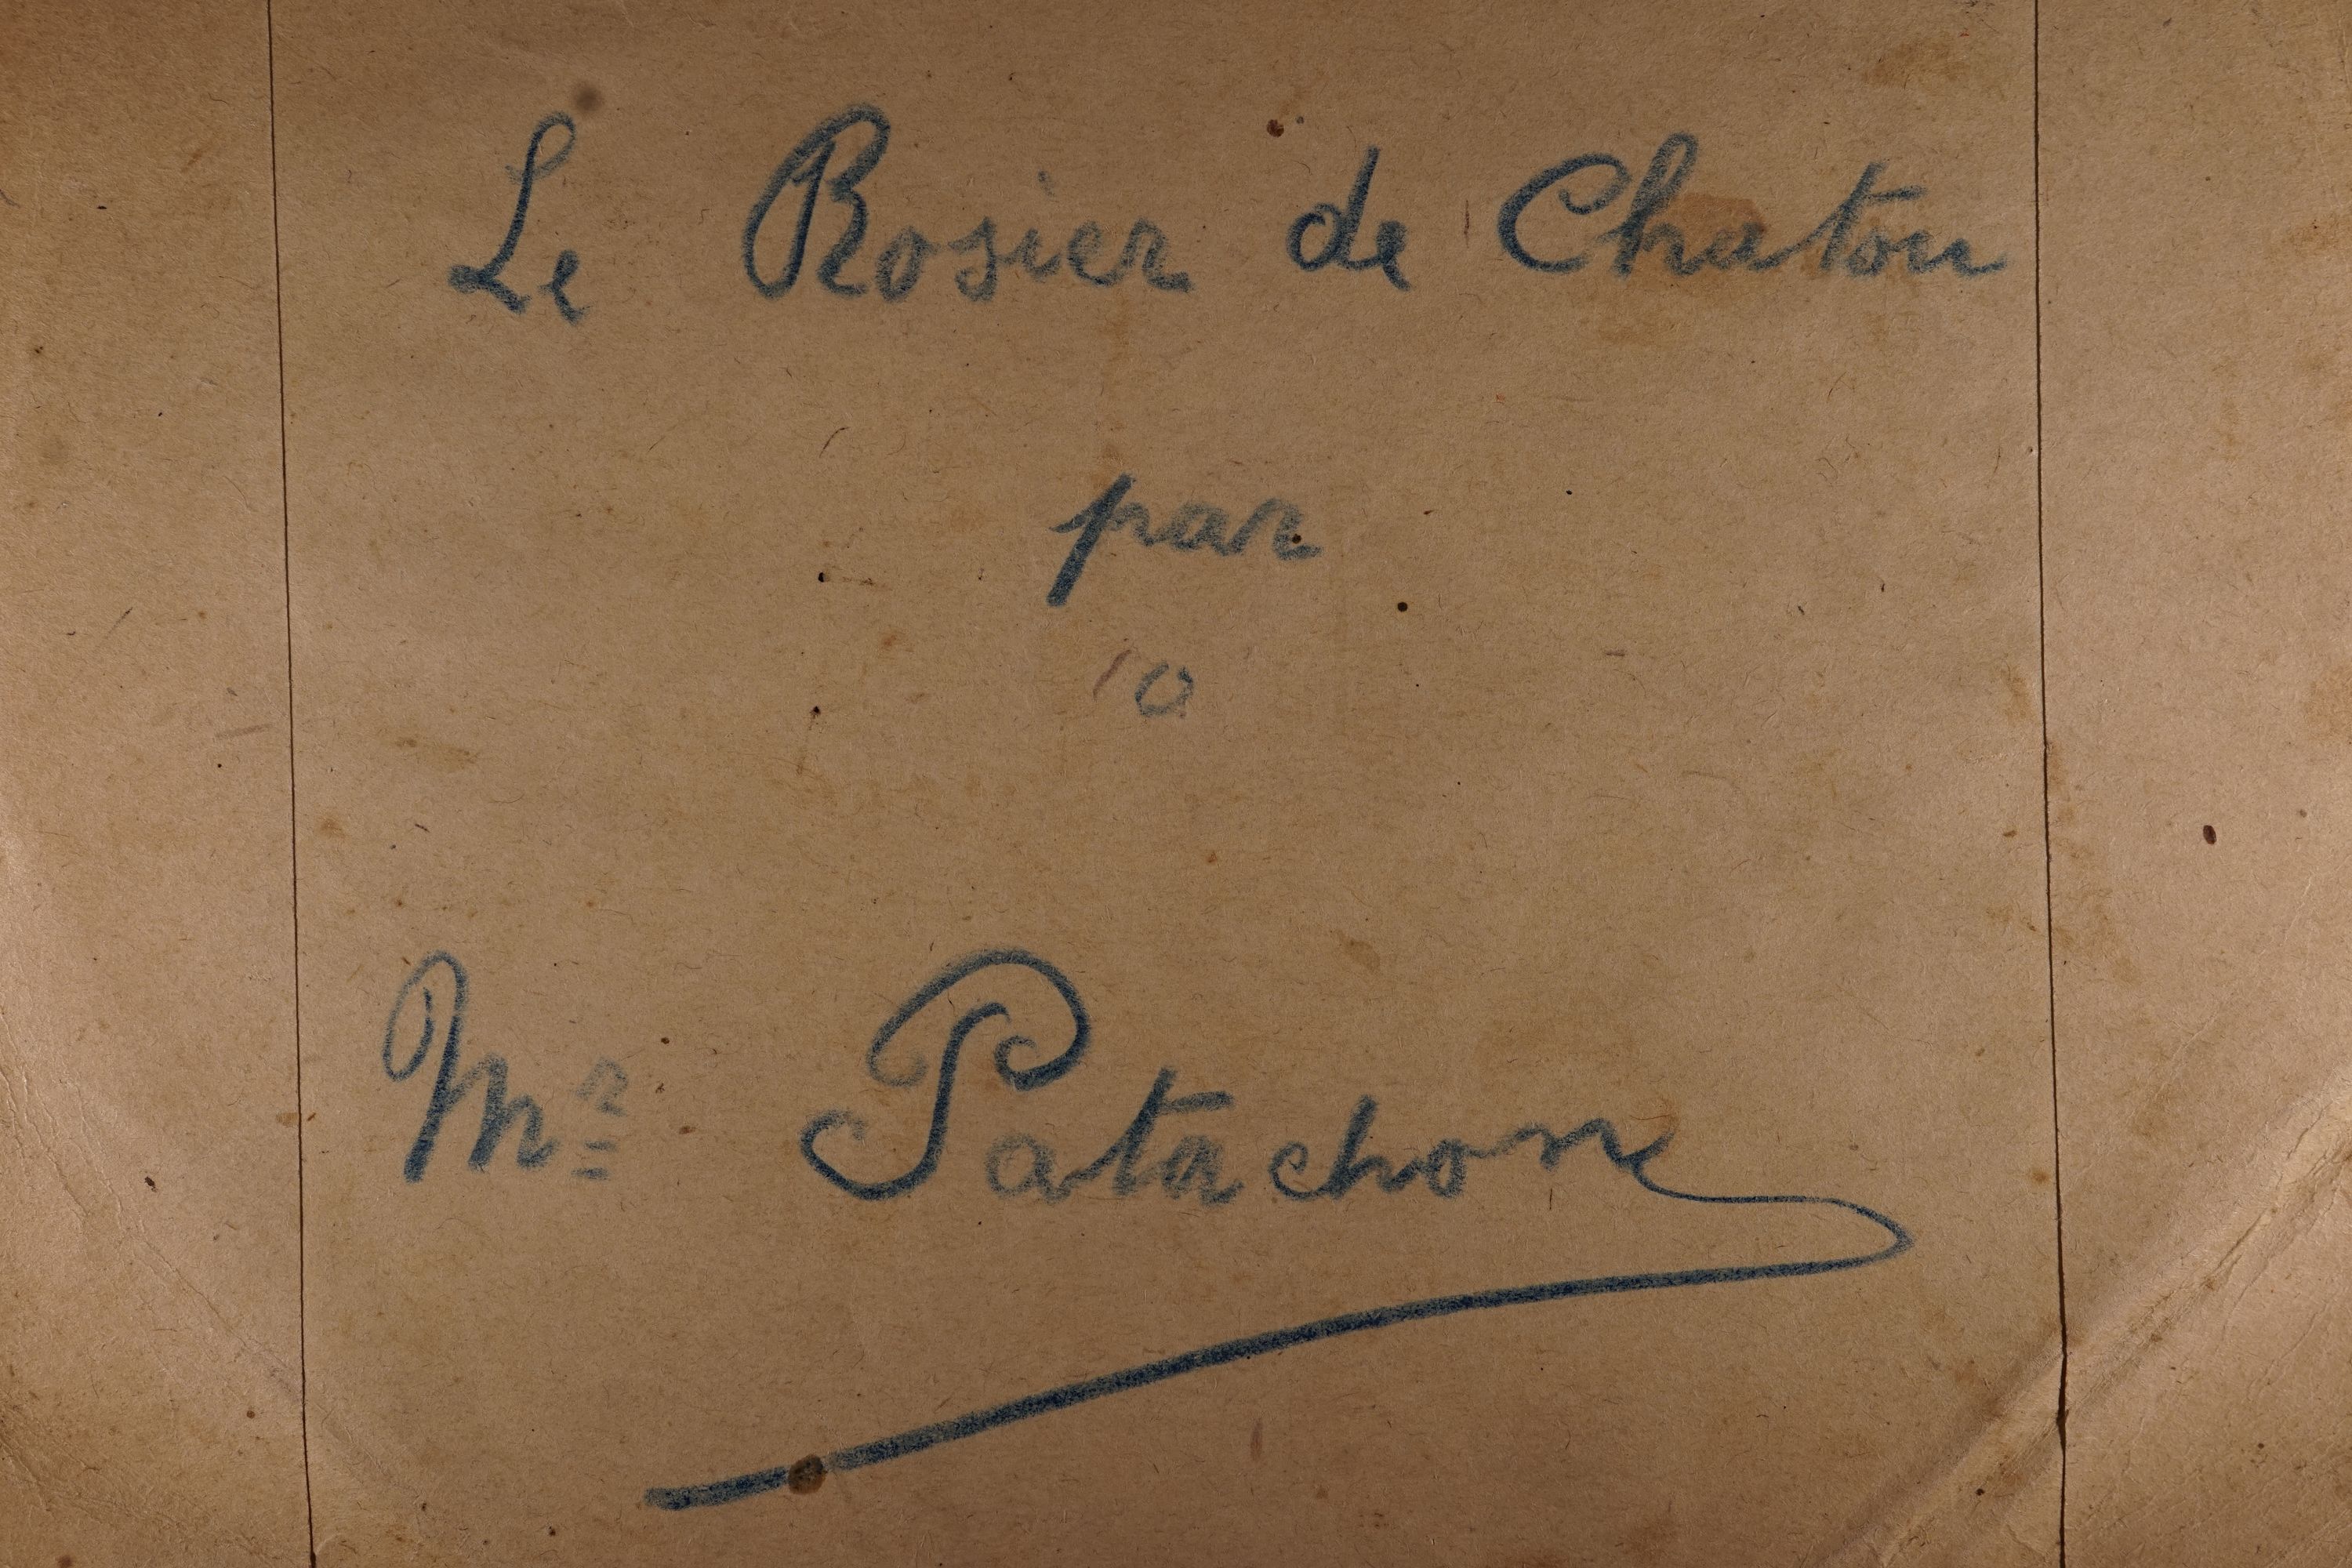 Le Rosier de Chatou
par
Mr Patachon